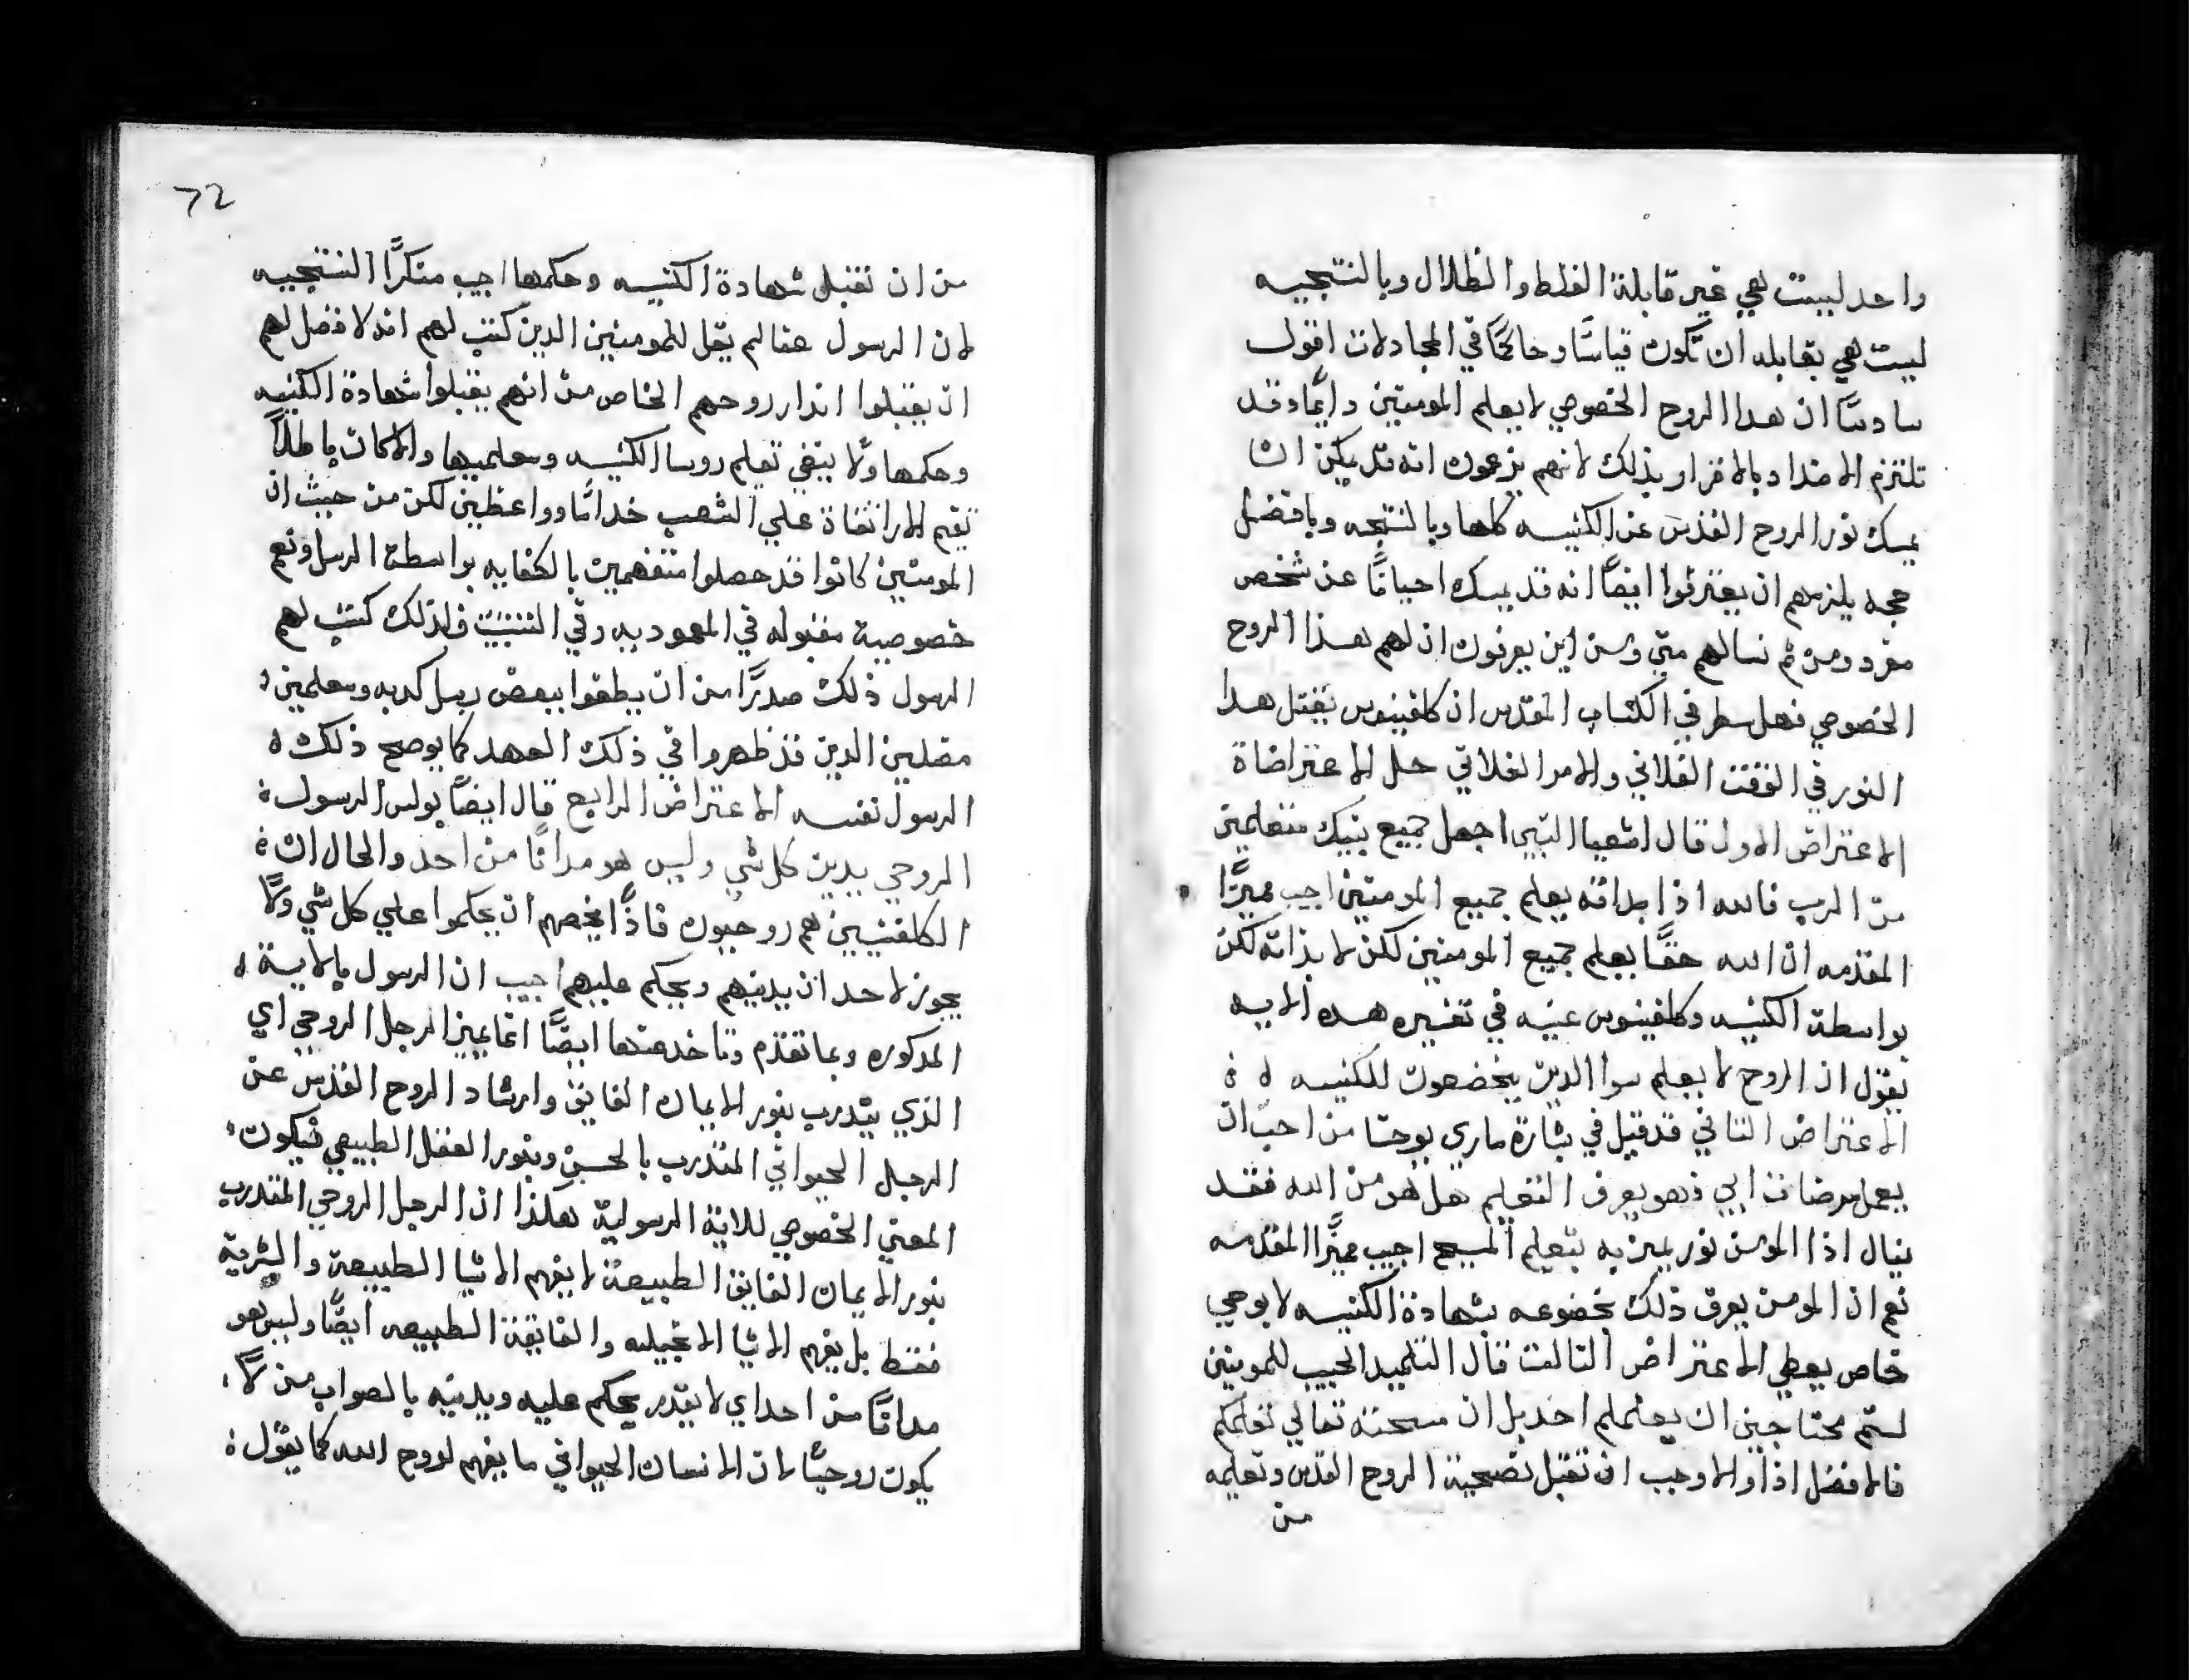 واحد ليست هي غير قابلة الغلط والظلال وبالنتجيه
ليست هي بقابله ان تكون قياسًا وحاكمًا في المجادلات اقول
سادسًا ان هدا الروح الخصوصي لا يعلم المومنين دايمًا وقد
تلتزم الاضداد بالاقرار بذلك لانهم يزعمون انه قد يمكن ان
يمسك نور الروح القدس عن الكنيسه كلها وبالنتجه وبافضل
حجه يلزمهم ان يعترفوا ايضًا انه قد يمسك احيانًا عن شخص
مفرد ومن ثم نسالهم متي ومن اين يعرفون ان لهم هذا الروح
الخصوصي فهل سطر في الكتاب المقدس ان كلفينوس يقبل هدا
النور في الوقت الفلاني والامر الفلاني حل الاعتراضاة
الاعتراض الاول قال اشعيا النبي اجعل جميع بنيك متعلمين
من الرب فالله اذا بذاته يعلم جميع المومنين اجيب مميزًا
المقدمه ان الله حقًا يعلم جميع المومنين لكن لا بذاته لكن
بواسطة الكنيسه وكلفينوس عينه في تفسيره هده الايه
يقول ان الروح لا يعلم سوا الدين يخضعون للكنيسه
الاعتراض التاني قد قيل في بشارة ماري يوحنا من احب ان
يعمل مرضات ابي فهو يعرف التعليم هل هو من الله فقد
ينال اذا المومن نور يميز به تعليم المسيح اجيب مميزًا المقدمه
نعم ان المومن يعرف ذلك بخضوعه بشهادة الكنيسه لا بوحي
خاص يعطي الاعتراض التالت قال التلميد الحبيب للمومنين
لستم محتاجين ان يعلمكم احد بل ان مسحته تعالي تعلمكم
فالافضل اذا والاوجب ان تقبل نصحية الروح القدس وتعليمه
من
72
من ان تقبل شهادة الكنيسه وحكمها اجيب منكرًا النتيجيه
لان الرسول هنا لم يقل للمومنين الدين كتب لهم انه لا فضل لهم
ان يقبلوا اندار روحهم الخاص من انهم يقبلوا شهادة الكنيسه
وحكمها ولا ينبغي تعليم روسا الكنيسه ومعلميها والا كان باطلًا
تقيم الاراتقاة علي الشعب خدامًا وواعظين لكن من حيث ان
المومنين كانوا قد حصلوا متفهمين بالكفايه بواسطة الرسل ونعم
خصوصية مقبوله في المعموديه وفي التثبيت فلذلك كتب لهم
الرسول ذلك حدرًا من ان يطغوا ببعض رسل كدبه ومعلمين
مضلين الدين قد ظهروا في ذلك العهد كما يوضح ذلك
الرسول نفسه الاعتراض الرابع قال ايضًا بولس الرسول
الروحي يدين كل شي وليس هو مدانًا من احد والحال ان
الكلفنيين هم روحيون فاذًا يخصهم ان يحكموا علي كل شي ولا
يجوز لاحد ان يدينهم ويحكم عليهم اجيب ان الرسول بالاية
المدكوره وبما تقدم وتاخر عنها ايضًا انما يميز الرجل الروحي اي
الذي يتدرب بنور الايمان الفايق وارشاد الروح القدس عن
الرجل الحيواني المتدرب بالحس وبنور العقل الطبيعي فيكون
المعني الخصوصي للاية الرسولية هكذا ان الرجل الروحي المتدرب
بنور الايمان الفايق الطبيعة لا يفهم الاشيا الطبيعة والبشرية
فقط بل يفهم الاشيا الانجيليه والفايقة الطبيعه ايضًا وليس هو
مدانًا من احد اي لا يقدر يحكم عليه ويدينه بالصواب من لا
يكون روحيًا لان الانسان الحيواني ما يفهم لروح الله كما يقول